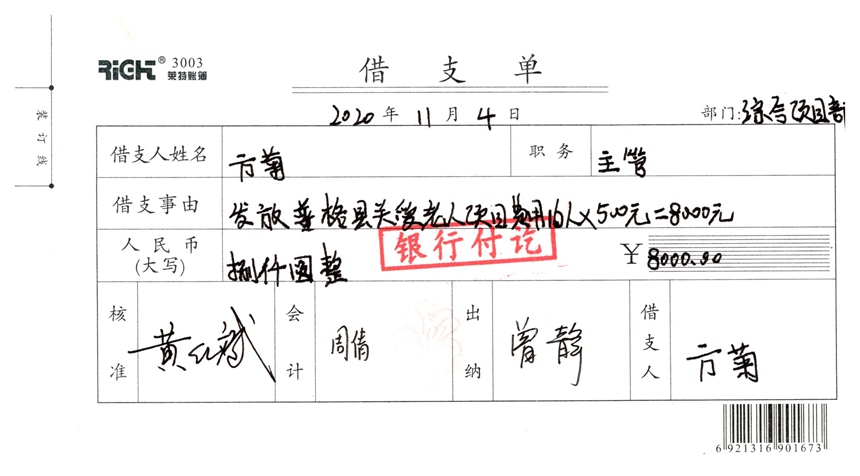 RIGHT® 3003
莱特账簿
借支单
2020年11月4日
部门:综合项目部
装订线
借支人姓名 方菊 职务 主管
借支事由 发放 格县关爱老人项目费用16人×500元=8000元
人民币(大写) 捌仟圆整 ¥8000.00
银行付讫
核准 黄 会计 周倩 出纳 曾静 借支人 方菊
6 921316 901673